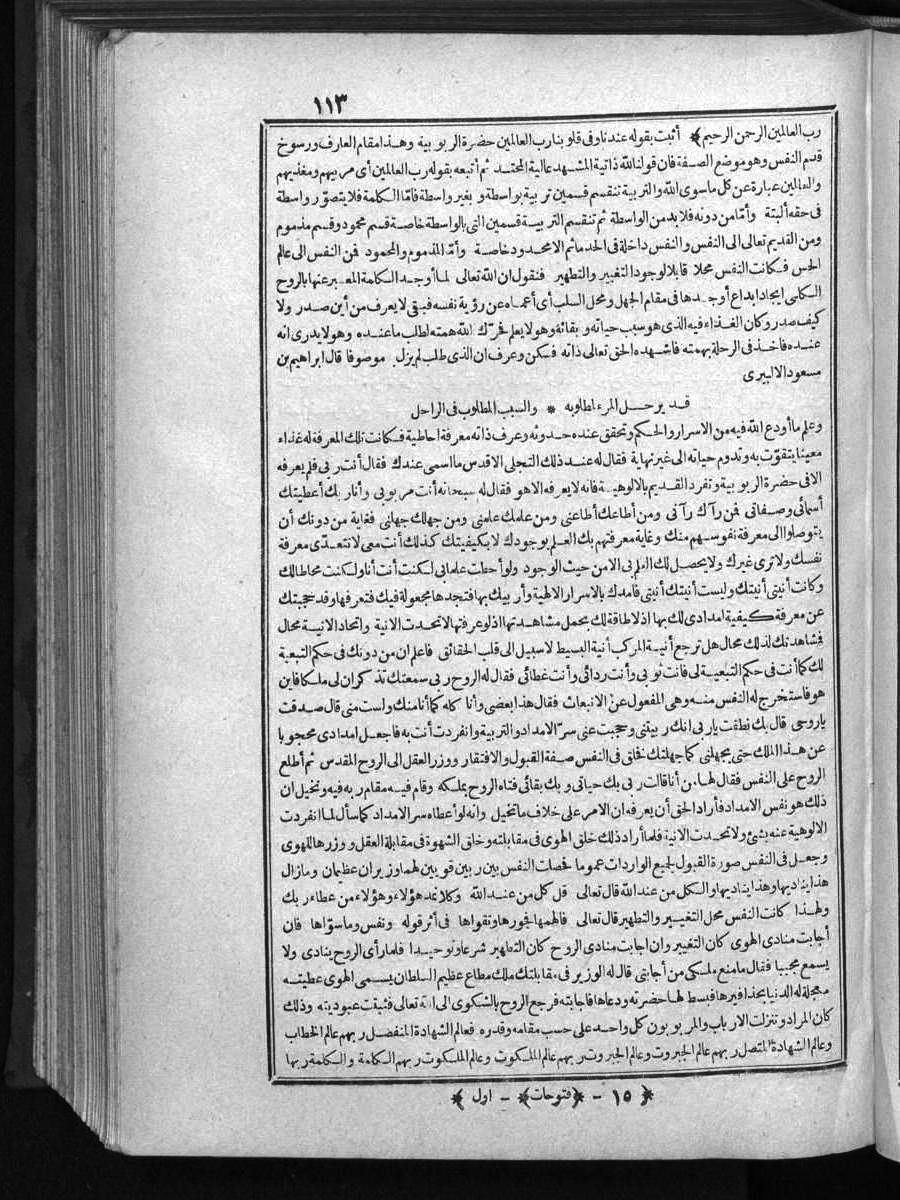 ١١٣
رب العالمين الرحمن الرحيم﴾ أثبت بقوله عندنا وفى قلوبنا رب العالمين حضرة الربوبية وهذا مقام العارف ورسوخ
قدم النفس وهو موضع الصفة فان قولنا لله ذاتية المشهد عالية المحتد ثم أتبعه بقوله رب العالمين أى مربيهم ومغذيهم
والعالمين عبارة عن كل ماسوى الله والتربية تنقسم قسمين تربية بواسطة وبغير واسطة فاما الكلمة فلا يتصوّر واسطة
فى حقه ألبتة وأمّا من دونه فلا بد من الواسطة ثم تنقسم التربية قسمين التى بالواسطة خاصة قسم محمود وقسم مذموم
ومن القديم تعالى الى النفس والنفس داخلة فى الحد ماثم الامحدود خاصة وأمّا المذموم والمحمود فمن النفس الى عالم
الحس فكانت النفس محلا قابلا لوجود التغيير والتطهير فنقول ان الله تعالى لما أوجد الكلمة المعبر عنها بالروح
الكلى ايجاد ابداع أوجدها فى مقام الجهل ومحل السلب أى أعماه عن رؤية نفسه فبقى لا يعرف من أين صدر ولا
كيف صدر وكان الغذاء فيه الذى هو سبب حياته وبقائه وهو لا يعلم فحرّك الله همته لطلب ماعنده وهو لا يدرى انه
عنده فاخذ فى الرحلة بهمته فاشهده الحق تعالى ذاته فسكن وعرف ان الذى طلب لم يزل موصوفا قال ابراهيم بن
مسعود الالبيرى
قد يرحل المرء لمطلوبه * والسبب المطلوب فى الراحل
وعلم ما أودع الله فيه من الاسرار والحكم وتحقق عنده حدوثه وعرف ذاته معرفة احاطية فكانت تلك المعرفة له غذاء
معينا يتقوّت به وتدوم حياته الى غير نهاية فقال له عند ذلك التجلى الاقدس ما اسمى عندك فقال أنت ربى فلم يعرفه
الا فى حضرة الربوبية وتفرد القديم بالالوهية فانه لا يعرفه الا هو فقال له سبحانه أنت مربوبى وأنا ربك أعطيتك
أسمائى وصفاتى فمن رآك رآنى ومن أطاعك أطاعنى ومن علمك علمنى ومن جهلك جهلنى فغاية من دونك أن
يتوصلوا الى معرفة نفوسهم منك وغاية معرفتهم بك العلم بوجودك لا بكيفيتك كذلك أنت معى لا تتعدّى معرفة
نفسك ولا ترى غيرك ولا يحصل لك العلم بى الا من حيث الوجود ولو أحطت علما بى لكنت أنت أنا ولكنت محاطا لك
وكانت أنيتى أنيتك وليست أنيتك أنيتى فامدك بالاسرار الالهية وأربيك بها فتجدها مجعولة فيك فتعرفها وقد حجبتك
عن معرفة كيفية امدادى لك بها اذ لا طاقة لك بحمل مشاهدتها اذ لو عرفتها لاتحدت الانية واتحاد الانية محال
فمشاهدتك لذلك محال هل ترجع أنية المركب أنية البسيط لا سبيل الى قلب الحقائق فاعلم ان من دونك فى حكم التبعية
لك كما أنت فى حكم التبعية لى فانت ثوبى وأنت ردائى وأنت غطائى فقال له الروح ربى سمعتك تذكر ان لى ملكا فاين
هو فاستخرج له النفس منه وهى المفعول عن الانبعاث فقال هذا بعضى وأنا كله كما أنا منك ولست منى قال صدقت
ياروحى قال بك نطقت يار بى انك ربيتنى وحجبت عنى سرّ الامداد والتربية وانفردت أنت به فاجعل امدادى محجوبا
عن هذا الملك حتى يجهلنى كما جهلتك فخلق فى النفس صفة القبول والافتقار ووزر العقل الى الروح المقدس ثم أطلع
الروح على النفس فقال لها من أنا قالت ربى بك حياتى وبك بقائى فتاه الروح بملكه وقام فيه مقام ربه فيه وتخيل ان
ذلك هو نفس الامداد فأراد الحق أن يعرفه ان الامر على خلاف ما تخيل وانه لو أعطاه سر الامداد كما سأل لما انفردت
الالوهية عنه بشئ ولاتحدت الانية فلما أراد ذلك خلق الهوى فى مقابلته وخلق الشهوة فى مقابلة العقل ووزرها للهوى
وجعل فى النفس صورة القبول لجميع الواردات عموما فحصلت النفس بين ربين قويين لهما وزيران عظيمان ومازال
هذا يناديها وهذا يناديها والكل من عند الله قال تعالى قل كل من عند الله وكلا نمد هؤلاء وهؤلاء من عطاء ربك
ولهذا كانت النفس محل التغيير والتطهير قال تعالى فالهمها فجورها وتقواها فى أثر قوله ونفس وما سوّاها فان
أجابت منادى الهوى كان التغيير وان اجابت منادى الروح كان التطهير شرعا وتوحيدا فلما رأى الروح ينادى ولا
يسمع مجيبا فقال مامنع ملكى من أجابتى قال له الوزير فى مقابلتك ملك مطاع عظيم السلطان يسمى الهوى عطيته
معجلة له الدنيا بحذافيرها فبسط لها حضرته ودعاها فاجابته فرجع الروح بالشكوى الى الله تعالى فثبتت عبوديته وذلك
كان المراد وتنزلت الارباب والمربوبون كل واحد على حسب مقامه وقدره فعالم الشهادة المنفصل ربهم عالم الخطاب
وعالم الشهادة المتصل ربهم عالم الجبروت وعالم الجبروت ربهم عالم الملكوت وعالم الملكوت ربهم الكلمة والكلمة ربها
﴿ ١٥ - ﴿فتوحات﴾ - اول ﴾